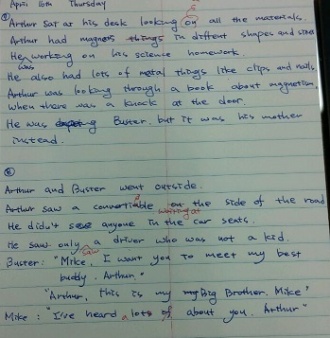 April 16th Thursday
① Arthur sat at his desk looking on all the materials.
Arthur had magnets things in diffent shapes and sizes
He was working on his science homework.
He also had lots of metal things like clips and nails
Arthur was looking through a book about magnetism
when there was a knock at the door.
He was Buster. but it was his mother
instead.
②
Arthur and Buster went outside.
Arthur saw a convertiable on the side of the road
waiting at
He didn't see anyone in the car seats.
He saw only a driver who was not a kid.
Buster: "Mike, I want you to meet my best
buddy. Arthur."
"Arthur, this is my Big Brother. Mike"
Mike: "I've heard a lots of about you. Arthur"